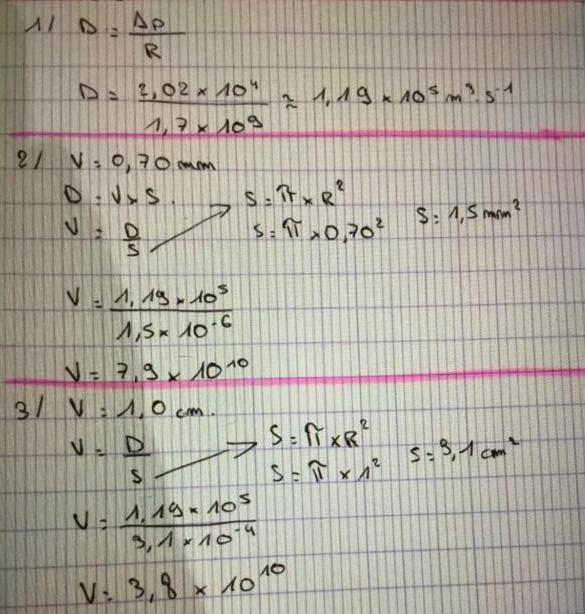 1/ D = Δp / R
D = 2,02 × 10⁴ / 1,7 × 10⁹ ≈ 1,19 × 10⁵ m³.s⁻¹
2/ V = 0,70 mm
D = V × S.
S = π × R²
V = D / S
S = π × 0,70²
S = 1,5 mm²
V = 1,19 × 10⁵ / 1,5 × 10⁻⁶
V = 7,9 × 10¹⁰
3/ V = 1,0 cm.
V = D / S
S = π × R²
S = π × 1²
S = 3,1 cm²
V = 1,19 × 10⁵ / 3,1 × 10⁻⁴
V = 3,8 × 10¹⁰